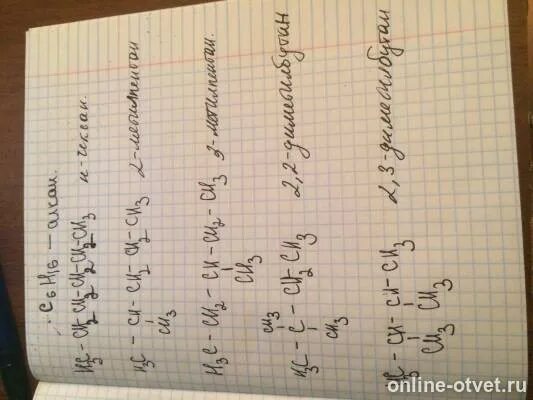 C6H16 – алкан.
H3C–CH2–CH2–CH2–CH2–CH3 н-гексан.
H3C – CH – CH2 – CH2 – CH3 2-метилпентан
CH3
H3C – CH2 – CH – CH2 – CH3 3-метилпентан.
CH3
CH3
H3C – C – CH2 CH3 2,2-диметилбутан
CH3
H3C – CH – CH – CH3 2,3-диметилбутан
CH3 CH3
online-otvet.ru